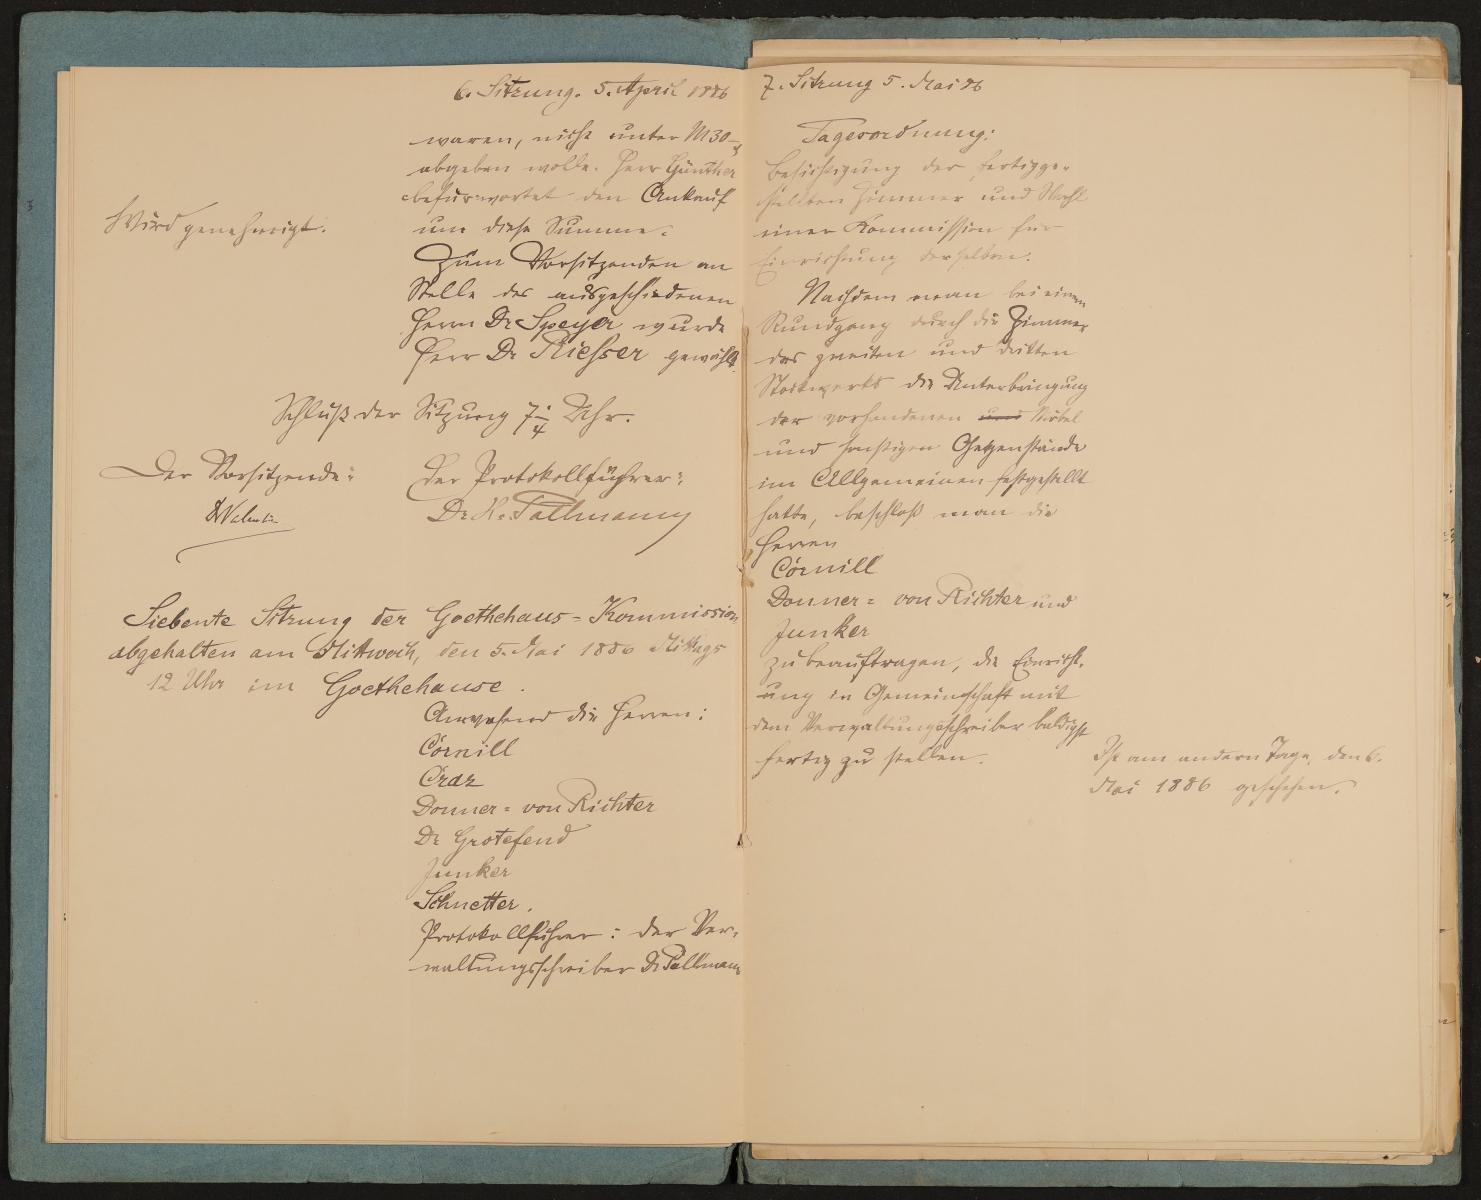 6. Sitzung. 5. April 1886
waren, nicht unter M 30
abgeben wolle. Herr Günther
befürwortet den Ankauf
Wird genehmigt.
um diese Summe.
Zum Vorsitzenden an
Stelle des ausgeschiedenen
Herrn Dr Speyer wurde
Herr Dr Riesser gewählt.
Schluß der Sitzung 7 1/4 Uhr.
Der Vorsitzende:
Der Protokollführer:
Valentin
Dr. H. Pallmann
Siebente Sitzung der Goethehaus-Kommission
abgehalten am Mittwoch, den 5. Mai 1886 Mittags
12 Uhr im Goethehause.
Anwesend die Herren:
Cornill
Craz
Donner-von Richter
Dr Grotefend
Junker
Schnetter.
Protokollführer: der Ver-
waltungsschreiber Dr Pallmann
7. Sitzung 5. Mai 86
Tagesordnung:
Besichtigung der fertigge-
stellten Zimmer und Wahl
einer Kommission für
Einrichtung derselben.
Nachdem man bei einem
Rundgang durch die Zimmer
des zweiten und dritten
Stockwerks die Unterbringung
der vorhandenen und Möbel
und sonstigen Gegenstände
im Allgemeinen festgestellt
hatte, beschloß man die
Herren
Cornill
Donner-von Richter und
Junker
zu beauftragen, die Einricht-
ung in Gemeinschaft mit
dem Verwaltungsschreiber baldigst
fertig zu stellen.
Ist am andern Tage, den 6.
Mai 1886 geschehen.